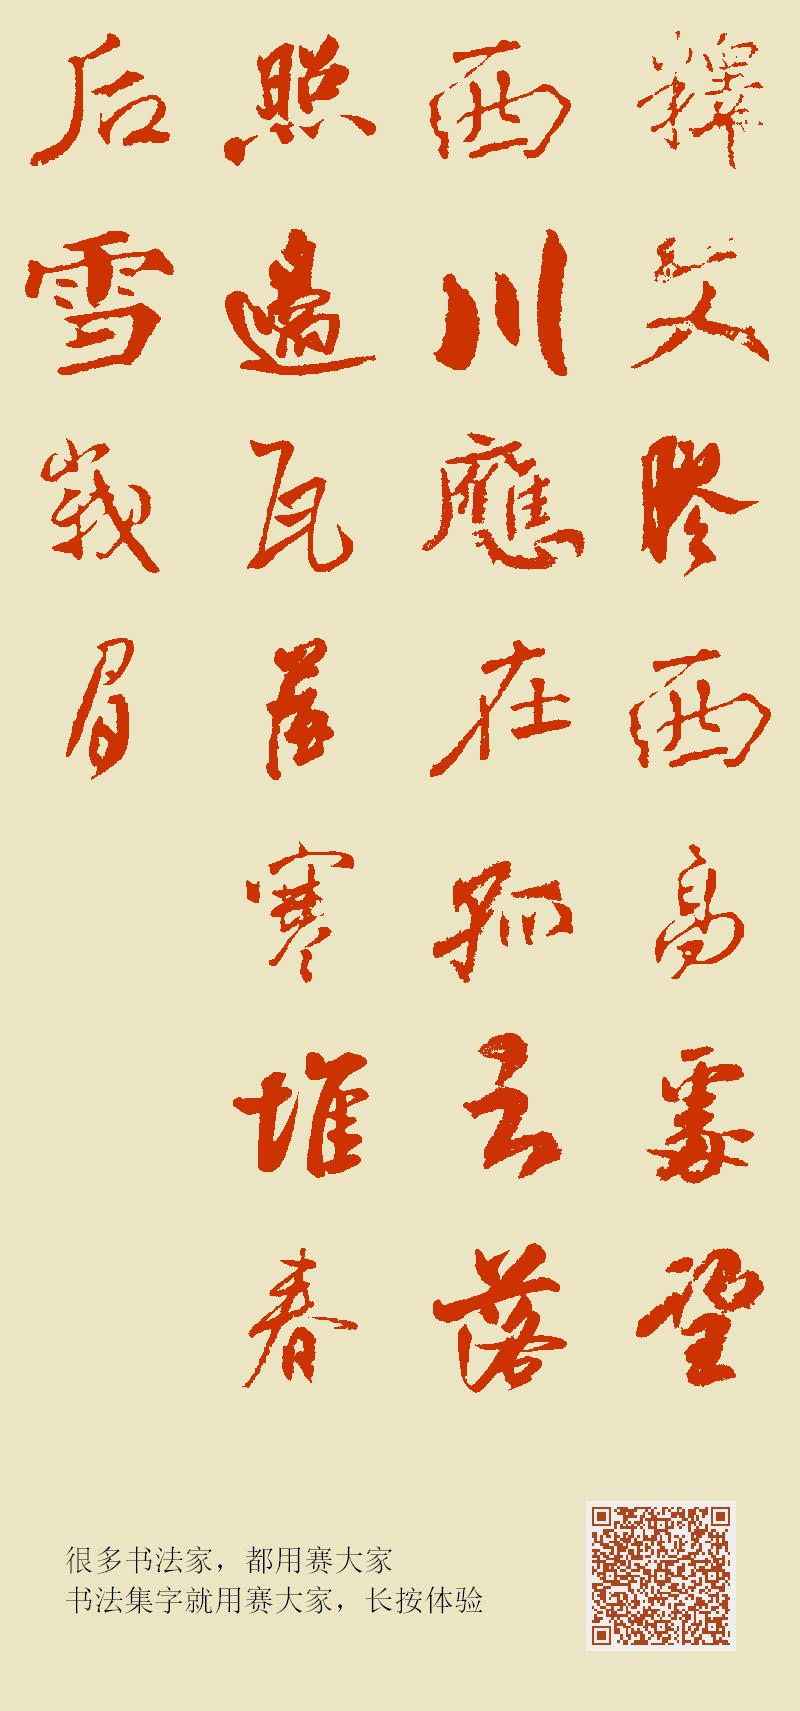 釋文膠西高處望
西川應在孤云落
照邊瓦屋寒堆春
后雪峩眉
很多书法家，都用赛大家
书法集字就用赛大家，长按体验